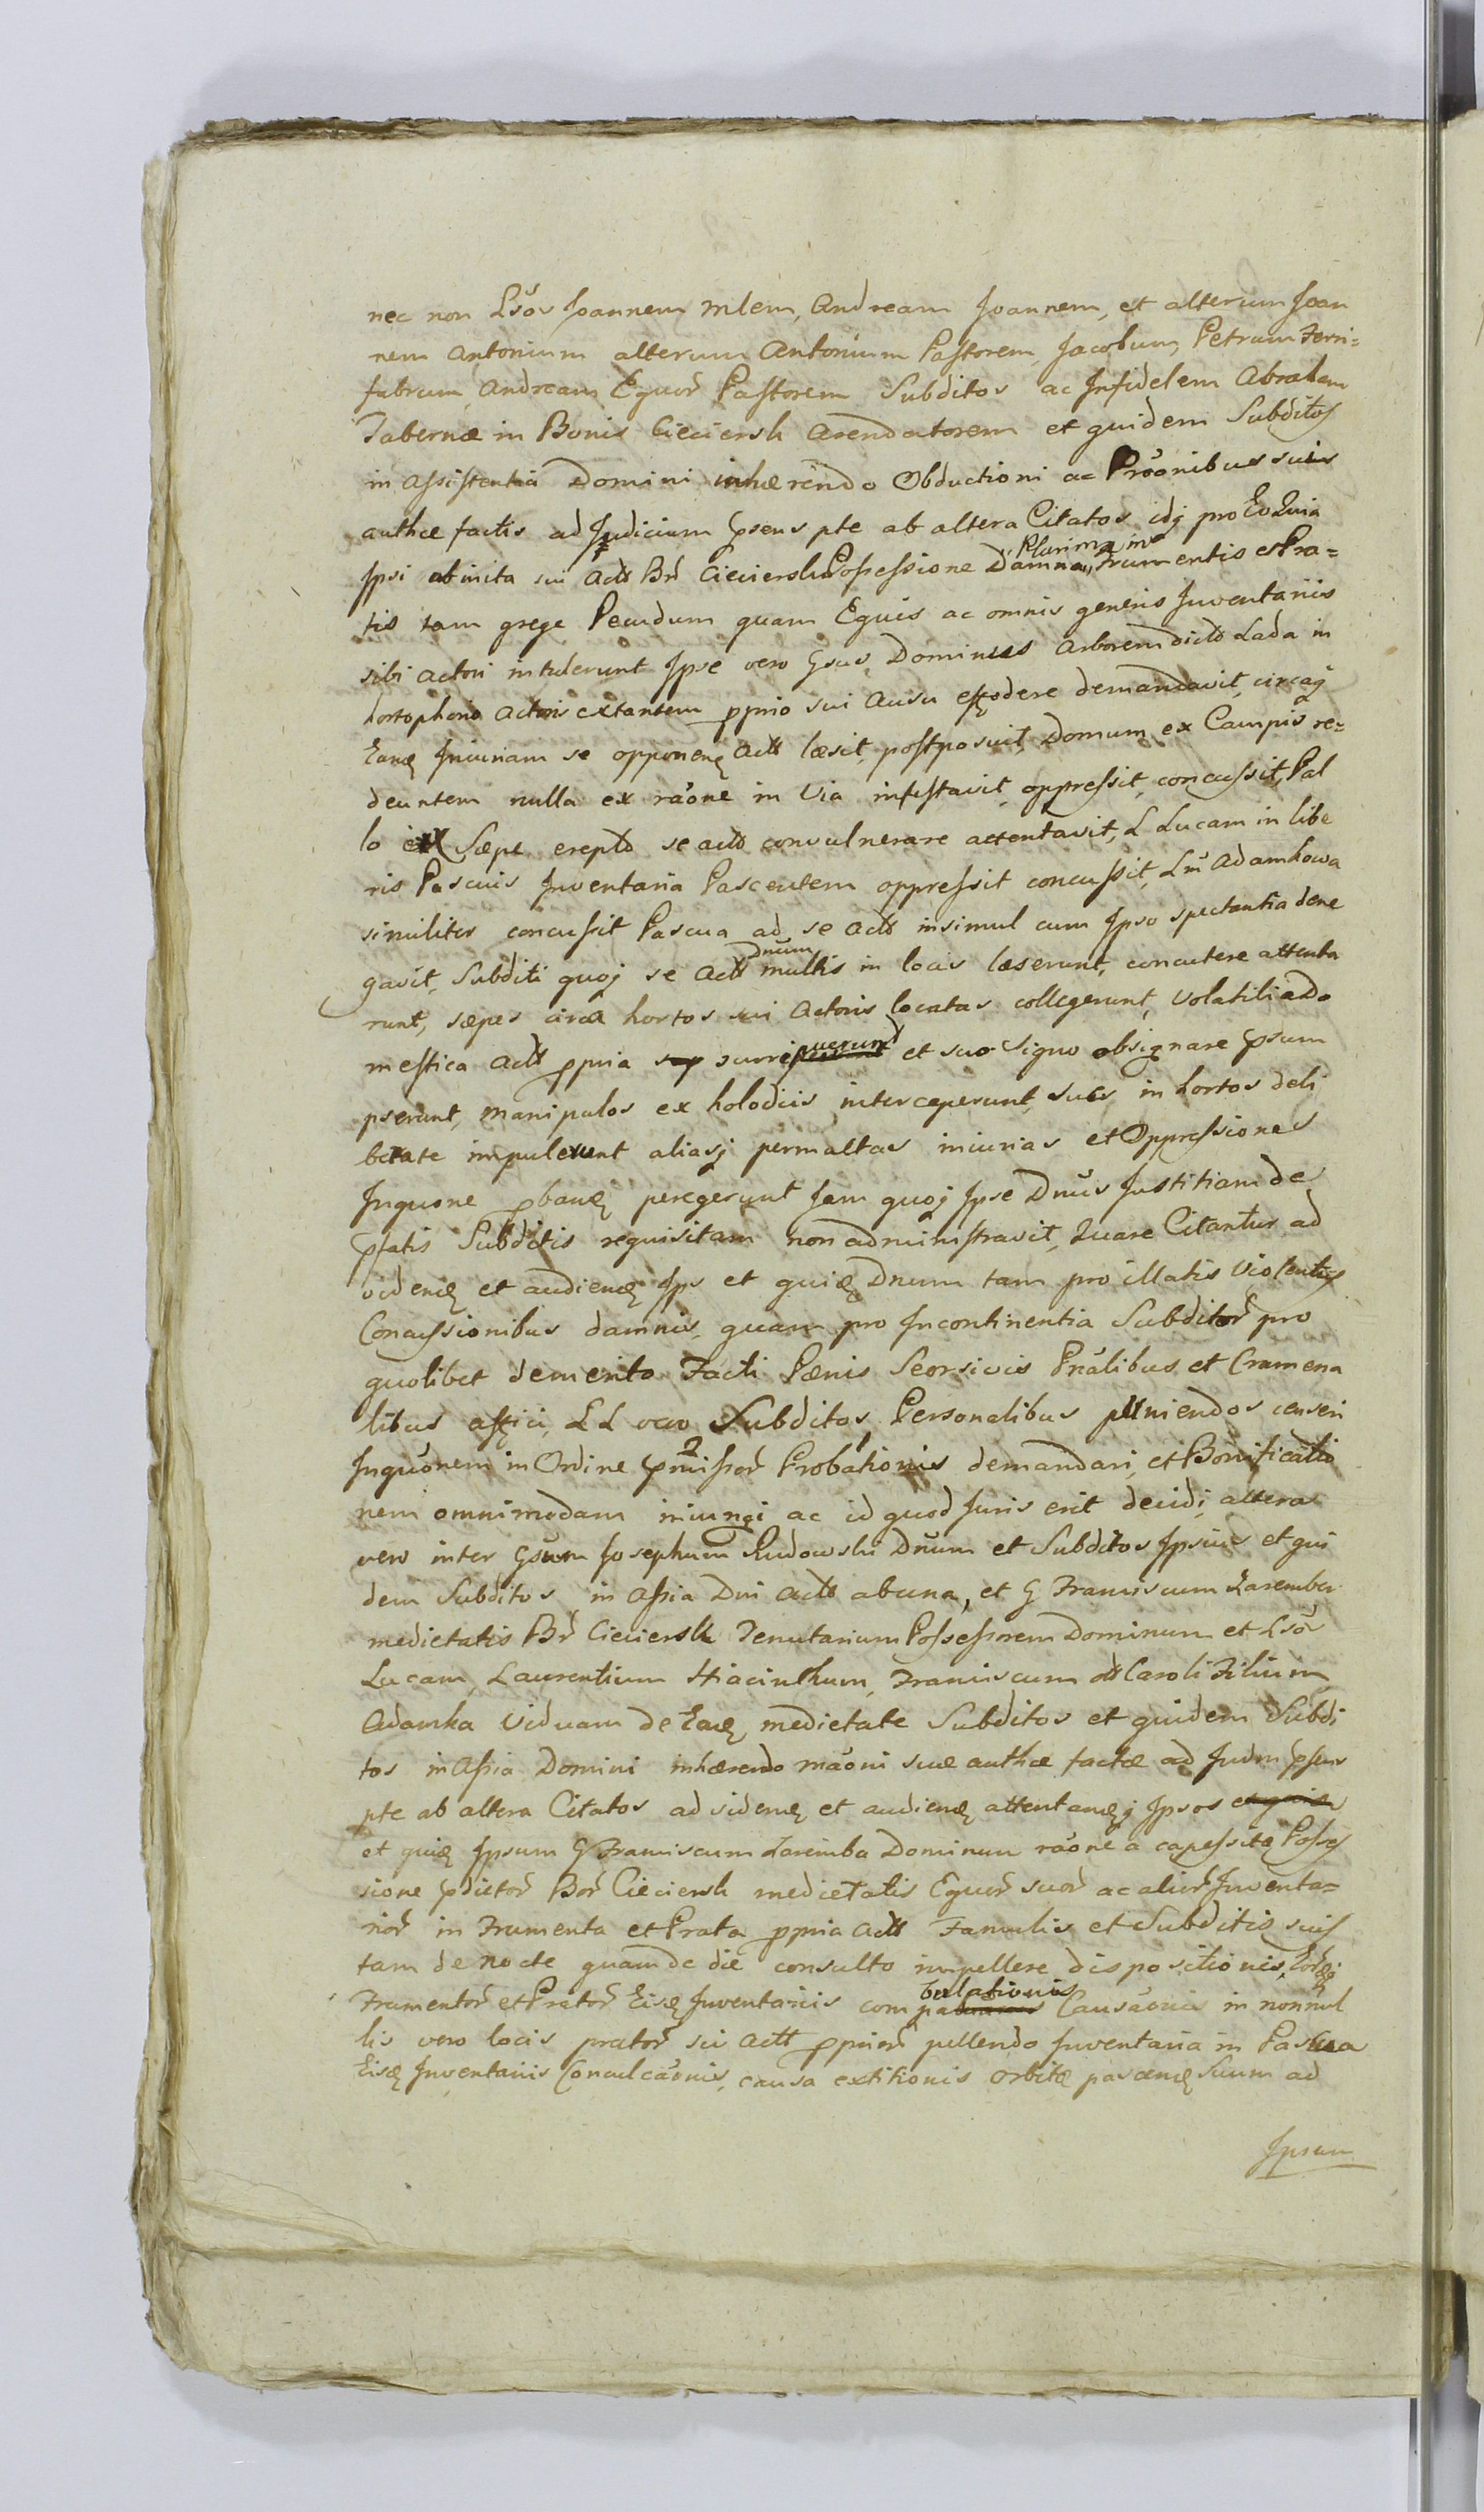 nec non Lsos Joannem Mlem, Andream Joannem, et alterum Joan
nem Antonium alterum Antonium Pastorem, Jacobum, Petrum Ferri=
fabrum, Andream Equor Pastorem Subditos ac Infidelem Abraham
Tabernæ in Bonis Cieciersk Arendatorem et quidem Subditos
in assistentia Domini inhærendo Obductioni ac Prõonibus suis
authce factis ad Judicium psens pte ab altera Citatos idq pro Eo Quia
Ipsi ab inita sui Actt Br Cieciersk Possessione Damna Plurima in Frumentis et Pra=
tis tam grege Pecudum quam Equis ac omnis generis Inventariis
sibi Actori intulerunt Ipse vero Gsus Dominus Arborem dictt Lada in
hortophono Actoris extantem ppnio sui Ausu effodere demandavit, circaq
Eand Iniuriam se opponend Actt læsit, postposuit, Domum ex Campis re=
deuntem nulla ex raõne in Via infestavit, oppressit, concussit, Pal
lo ex Sæpe ereptt se actt convulnerare attentavit, L Lucam in libe
ris Pascuis Inventaria Pascentem oppressit concussit, Lm Adamkowa
similiter concussit Pascua ad se Actt insimul cum Ipso spectantia dene
gavit, Subditi quoq se Actt Dnum multis in locis læserunt, concutere attenta
runt, sæpes circa hortos sui Actoris locatas collegerunt, Volatilia do
mestica Actt ppria surripuerunt et suo Signo obsignare psum
pserunt, manipulos ex holodiis interceperunt sues in hortos deli
berate impulerunt aliasq permaltas iniurias et Oppressiones
Inquone pband peregerunt Jam quoq Ipse Dnus Justitiam de
pfatis Subditis requisitam non administravit, Quare Citantur ad
videnđ et audienđ Ips et quid Dnum tam pro illatis Violentiis
Concussionibus damnis, quam pro Incontinentia Subditor pro
quolibet demerito Facti Pænis Seorsivis Pnalibus et Cramena
libus affici, LL vero Subditos Personalibus puniendos censeri
Inquõnem in Ordine pmissor Probationis demandari, et Bonificatio
nem omnimodam iniungi ac id quod Juris erit decidi, altera
vero inter Gsum Josephum Rudowski Dnum et Subditos Ipsius et qui
dem Subditos in Assia Dni Actt ab una, et G Franciscum Zarember
medietatis Br Cieciersk Tenutarium Possessorem Dominum et Lsos
Lucam, Laurentium Hiacinthum, Franciscum dtt Caroli Filium
Adamka Viduam de Ead medietate Subditos et quidem Subdi
tos in Assia Domini inhærendo maõni suæ authce factæ ad Judm psens
pte ab altera Citatos ad videnđ et audienđ attentandq Ipsos
et quid Ipsum G Franciscum Zaremba Dominum raõne a capessita Posses
sione pdictor Bor Cieciersk medietatis Equor suor ac alior Inventa=
rior in Frumenta et Prata ppria Actt Famulis et Subditis suis
tam de nocte quam de die consulto impellere dispositionis, Eorq
Frumentor et Prator Eisd Inventariis compabulationis Causãonis in nonnul
lis vero locis prator sui Actt pprior pellendo Inventaria in Pascua
Eisd Inventariis Conculcãonis, causa extitionis orbitæ pascend Suum ad
Ipsum